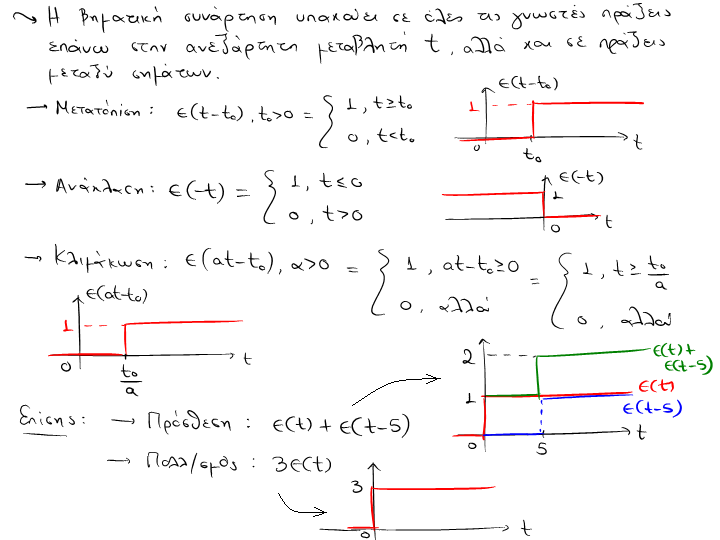 Η βηματική συνάρτηση υπακούει σε όλες τις γνωστές πράξεις
επάνω στην ανεξάρτητη μεταβλητή t, αλλά και σε πράξεις
μεταξύ σημάτων.
→ Μετατόπιση: ε(t-t₀), t₀>0 = { 1, t≥t₀
0, t<t₀
ε(t-t₀)
1
0
t₀
t
→ Ανάκλαση: ε(-t) = { 1, t≤0
0, t>0
ε(-t)
1
0
t
→ Κλιμάκωση: ε(at-t₀), α>0 = { 1, at-t₀≥0 = { 1, t≥ t₀/a
0, αλλού 0, αλλού
ε(at-t₀)
1
0
t₀/a
t
2
ε(t)+
ε(t-5)
1
ε(t)
ε(t-5)
0
5
t
Επίσης: → Πρόσθεση: ε(t) + ε(t-5)
→ Πολλ/σμός: 3ε(t)
3
0
t